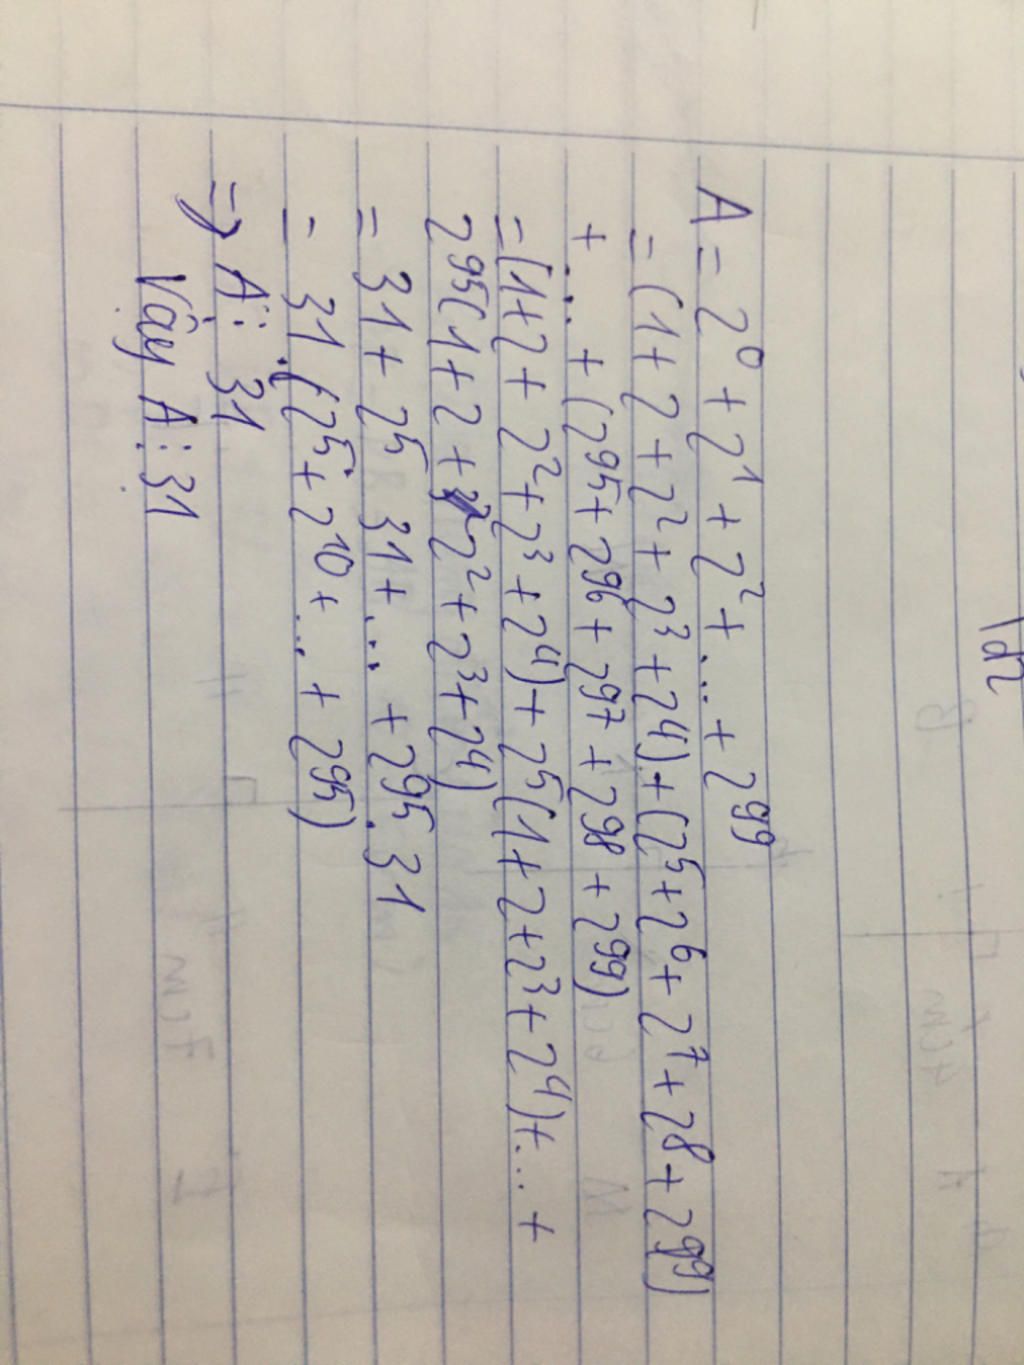 A = 2⁰ + 2¹ + 2² + ... + 2⁹⁹
= (1 + 2 + 2² + 2³ + 2⁴) + (2⁵ + 2⁶ + 2⁷ + 2⁸ + 2⁹⁹)
+ ... + (2⁹⁵ + 2⁹⁶ + 2⁹⁷ + 2⁹⁸ + 2⁹⁹)
= (1 + 2 + 2² + 2³ + 2⁴) + 2⁵(1 + 2 + 2³ + 2⁴) + ... +
2⁹⁵(1 + 2 + 2² + 2³ + 2⁴)
= 31 + 2⁵ 31 + ... + 2⁹⁵. 31
= 31 . (2⁵ + 2¹⁰ + ... + 2⁹⁵)
=> A ⋮ 31
Vậy A ⋮ 31